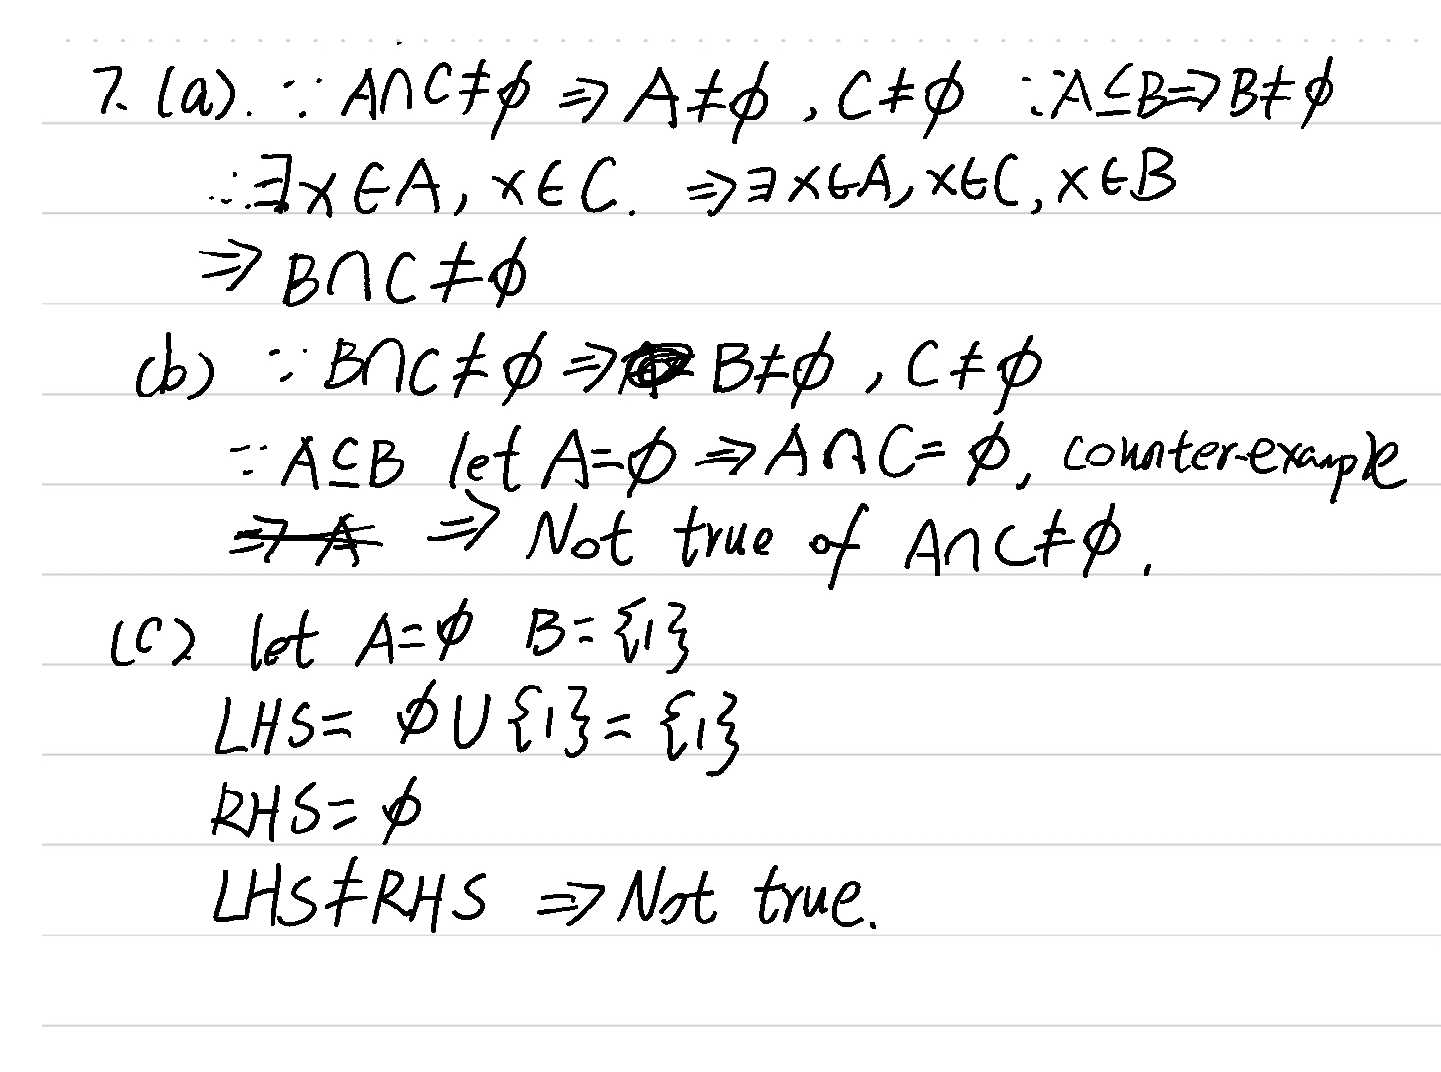 7. (a). ∵ A∩C≠ϕ ⇒ A≠ϕ , C≠ϕ ∵A⊆B⇒B≠ϕ
∴∃x∈A, x∈C. ⇒∃x∈A, x∈C, x∈B
⇒ B∩C≠ϕ
(b) ∵ B∩C≠ϕ ⇒ B≠ϕ , C≠ϕ
∵ A⊆B let A=ϕ ⇒ A∩C=ϕ, counter-example
⇒ A ⇒ Not true of A∩C≠ϕ.
(c) let A=ϕ B={1}
LHS= ϕ∪{1}={1}
RHS=ϕ
LHS≠RHS ⇒ Not true.